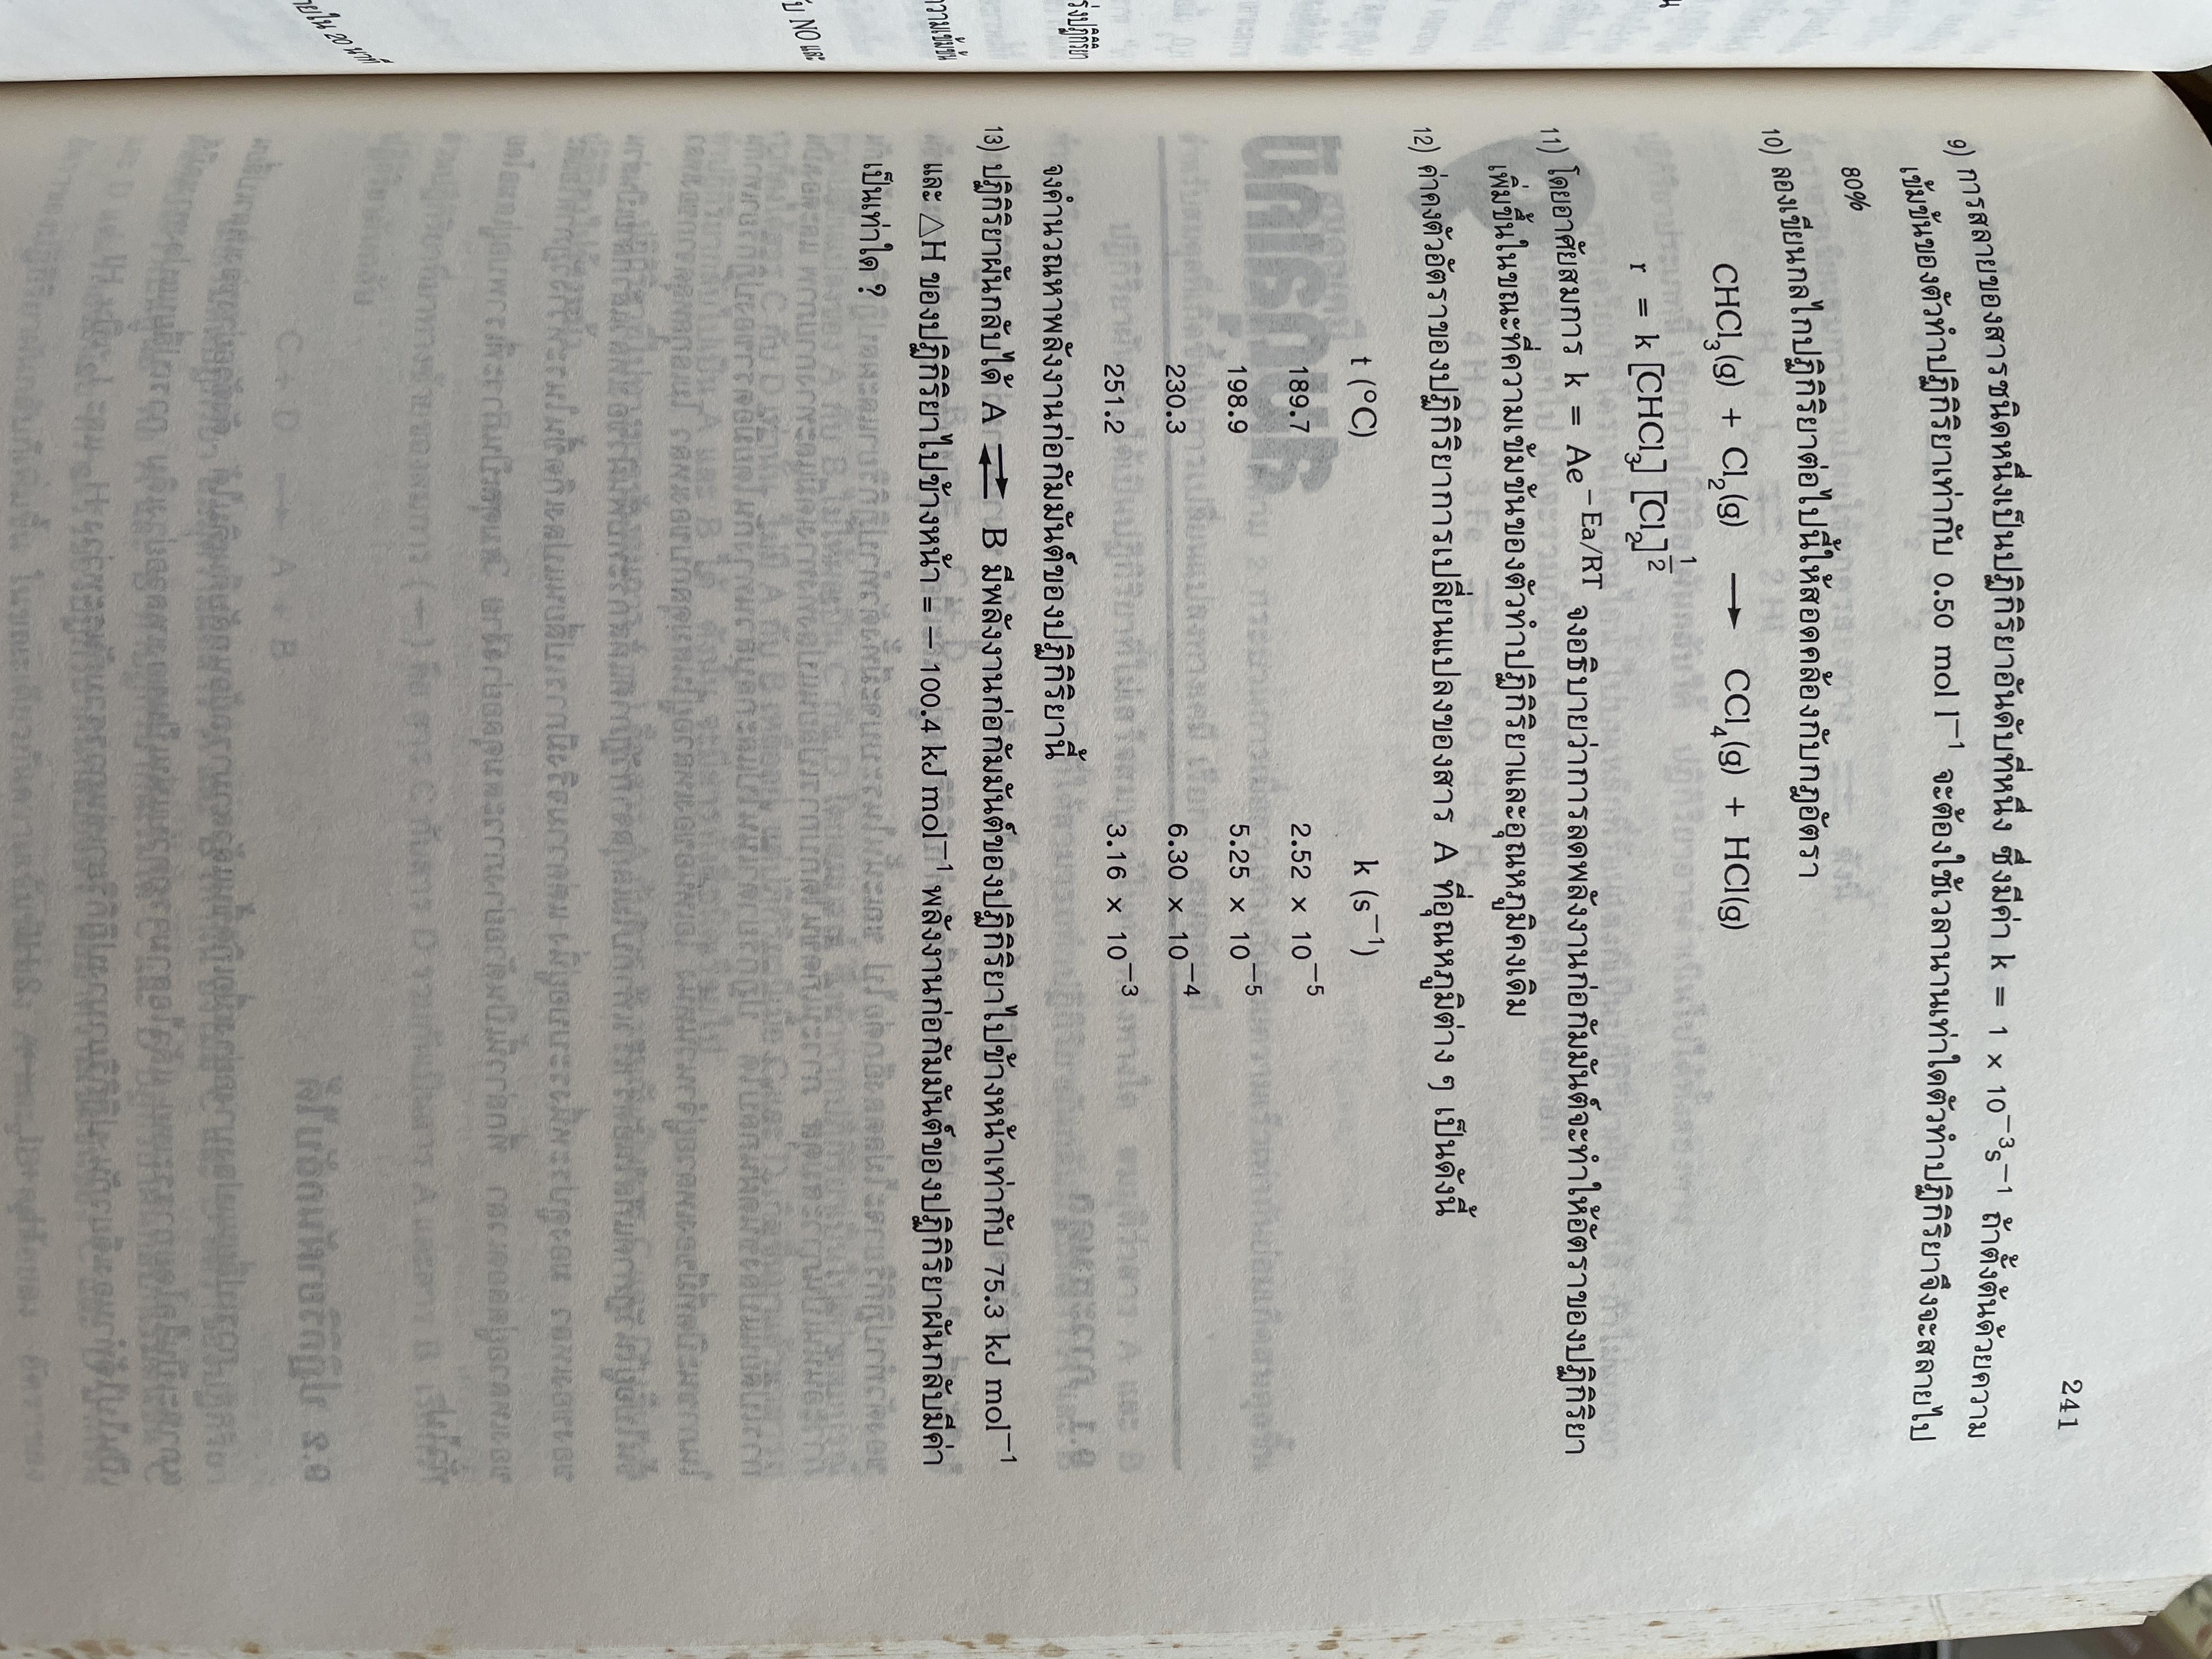 241
9) การสลายของสารชนิดหนึ่งเป็นปฏิกิริยาอันดับที่หนึ่ง ซึ่งมีค่า k = 1 × 10⁻³s⁻¹ ถ้าตั้งต้นด้วยความ
เข้มข้นของตัวทำปฏิกิริยาเท่ากับ 0.50 mol l⁻¹ จะต้องใช้เวลานานเท่าใดตัวทำปฏิกิริยาจึงจะสลายไป
80%
10) ลองเขียนกลไกปฏิกิริยาต่อไปนี้ให้สอดคล้องกับกฎอัตรา
CHCl₃(g) + Cl₂(g) → CCl₄(g) + HCl(g)
r = k [CHCl₃] [Cl₂]^½
11) โดยอาศัยสมการ k = Ae^−Ea/RT จงอธิบายว่าการลดพลังงานก่อกัมมันต์จะทำให้อัตราของปฏิกิริยา
เพิ่มขึ้นในขณะที่ความเข้มข้นของตัวทำปฏิกิริยาและอุณหภูมิคงเดิม
12) ค่าคงตัวอัตราของปฏิกิริยาการเปลี่ยนแปลงของสาร A ที่อุณหภูมิต่าง ๆ เป็นดังนี้
t (°C) k (s⁻¹)
189.7 2.52 × 10⁻⁵
198.9 5.25 × 10⁻⁵
230.3 6.30 × 10⁻⁴
251.2 3.16 × 10⁻³
จงคำนวณหาพลังงานก่อกัมมันต์ของปฏิกิริยานี้
13) ปฏิกิริยาผันกลับได้ A ⇌ B มีพลังงานก่อกัมมันต์ของปฏิกิริยาไปข้างหน้าเท่ากับ 75.3 kJ mol⁻¹
และ △H ของปฏิกิริยาไปข้างหน้า = − 100.4 kJ mol⁻¹ พลังงานก่อกัมมันต์ของปฏิกิริยาผันกลับมีค่า
เป็นเท่าใด ?
ร่งปฏิกิริยา
วามเข้มข้น
ับ NO และ
ายใน 20 นาที